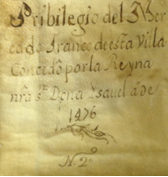 Pribilegio del Mer
cado franco de esta Villa
Concedo por la Reyna
nrã S.ª Dona Ysauel a de
1476
N. 2º